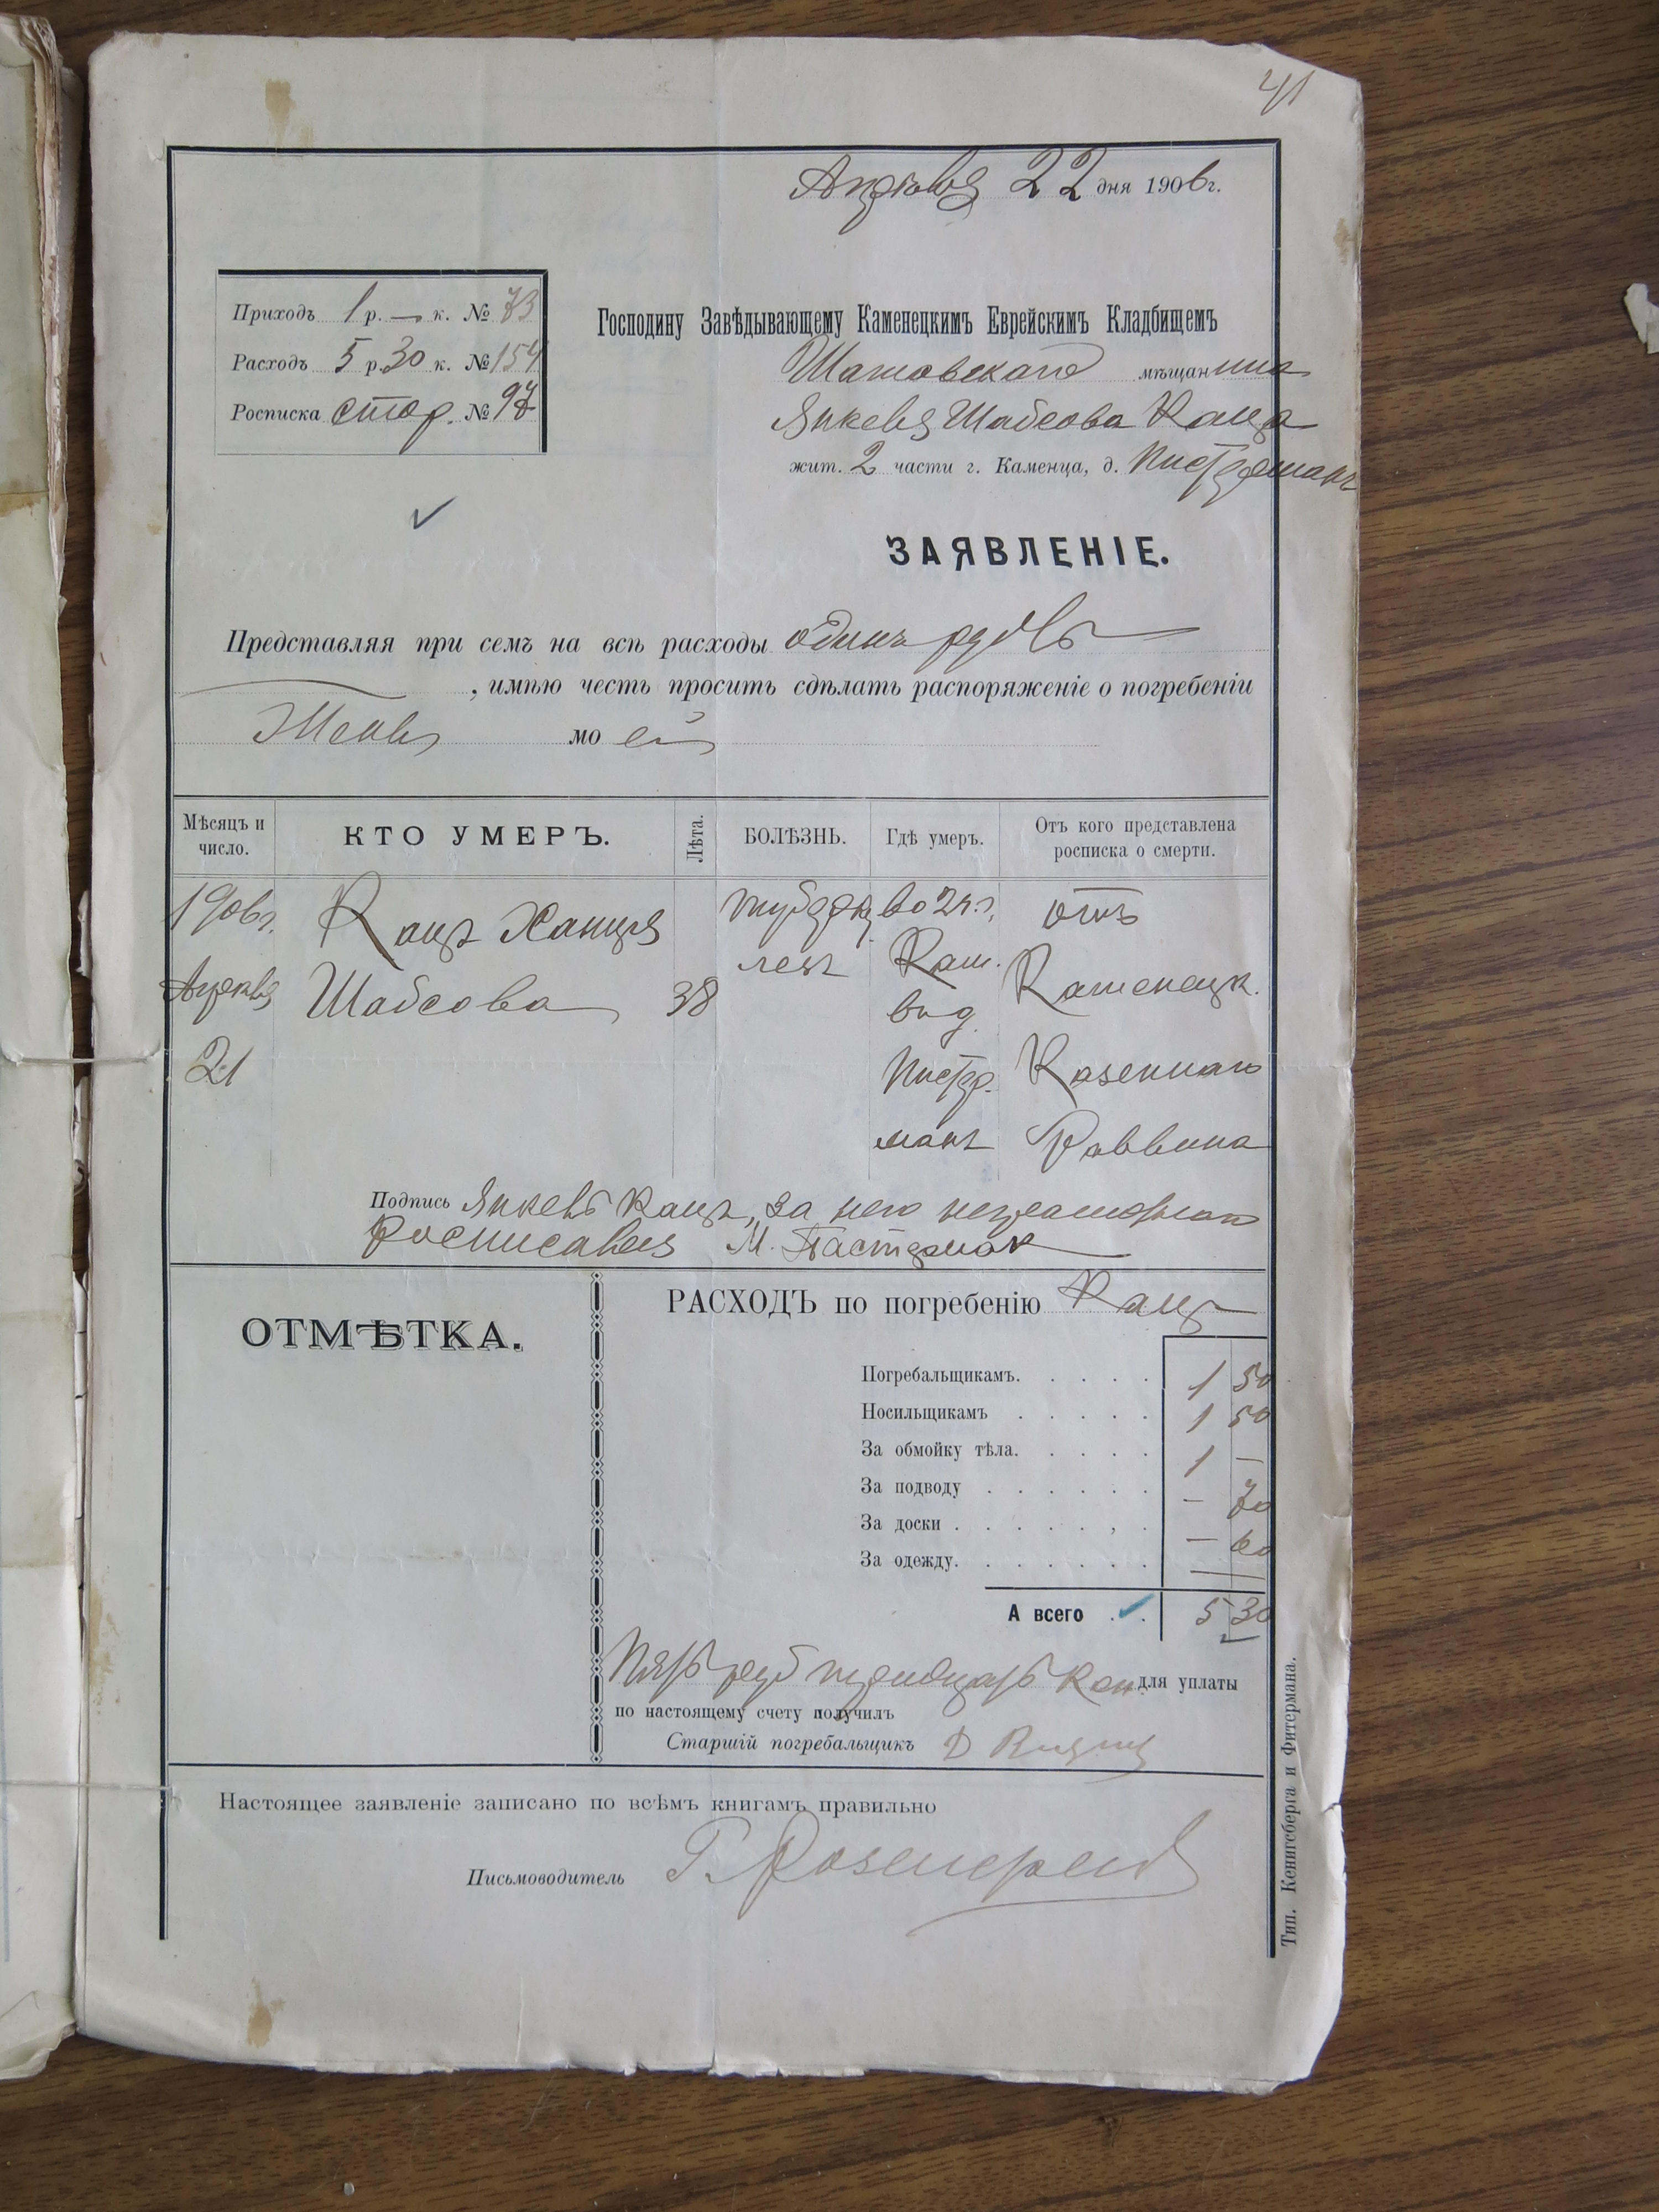 41
Апрѣля 22 дня 1906 г.
Приходъ 1 р. — к. № 73
Расходъ 5 р. 30 к. № 154
Росписка стор. № 97
Господину Завѣдывающему Каменецкимъ Еврейскимъ Кладбищемъ
Шатовскаго мѣщанина
Янкеля Шабсова Каца
жит. 2 части г. Каменца, д.
ЗАЯВЛЕНІЕ.
Представляя при семъ на всѣ расходы одинъ рубль
, имѣю честь просить сдѣлать распоряженіе о погребеніи
Жены моей
Мѣсяцъ и число. КТО УМЕРЪ. Лѣта. БОЛѢЗНЬ. Гдѣ умеръ. Отъ кого представлена росписка о смерти.
1906 г. Кацъ Ханця тубэрк во 2 ч. г. отъ
лезъ Кам. Каменецк.
Апрѣля Шабсова 38 в д.
21 Казеннаго
манъ Раввина
Подпись Янкель Кацъ, за него неграмотнаго
росписался М. Пастернак
ОТМѢТКА.
РАСХОДЪ по погребенію Кацъ
Погребальщикамъ. . . . . 1 50
Носильщикамъ . . . . . 1 50
За обмойку тѣла. . . . . 1 —
За подводу . . . . . . — 70
За доски . . . . . , . — 60
За одежду. . . . . . . —
А всего . . 5 30
Пять руб тридцать коп для уплаты
по настоящему счету получилъ
Старшій погребальщикъ Д
Настоящее заявленіе записано по всѣмъ книгамъ правильно
Письмоводитель Г.
Тип. Кенигсберга и Фитермана.